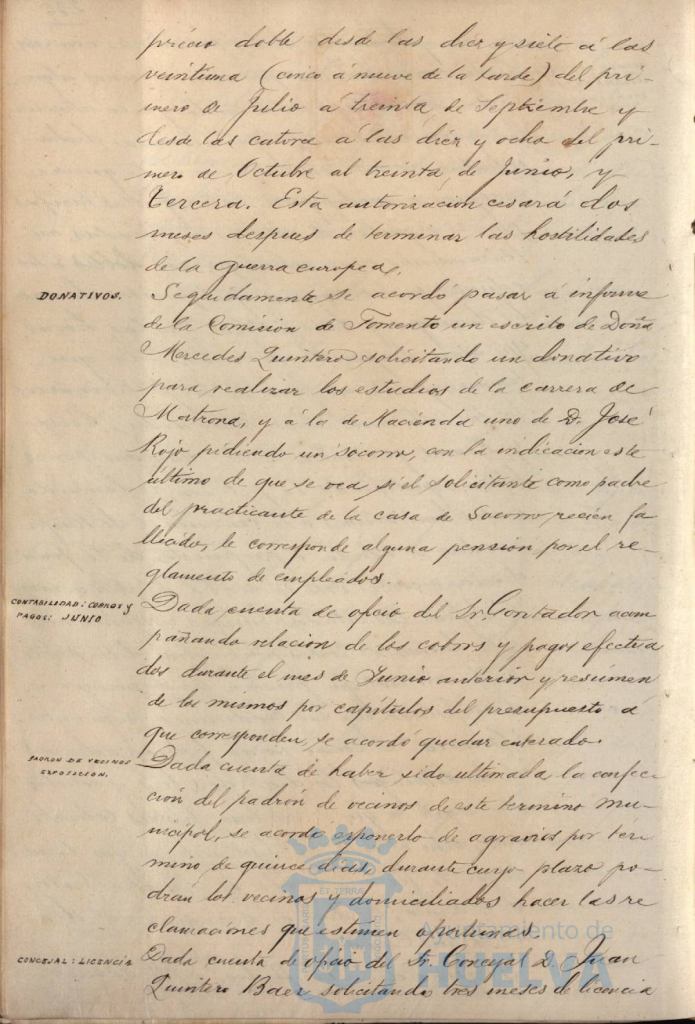 precio doble desde las diez y siete á las
veintiuna (cinco á nueve de la tarde) del pri-
mero de Julio á treinta de Septiembre y
desde las catorce á las diez y ocho del pri-
mero de Octubre al treinta de Junio, y
tercera. Esta autorización cesará dos
meses despues de terminar las hostilidades
de la guerra europea.
DONATIVOS.
Seguidamente se acordó pasar á informe
de la Comision de Fomento un escrito de Doña
Mercedes Quintero solicitando un donativo
para realizar los estudios de la carrera de
Matrona, y á la de Hacienda uno de D. José
Rojo pidiendo un socorro, con la indicacion este
último de que se vea si el solicitante como padre
del practicante de la casa de Socorro recien fa
llecido, le corresponde alguna pensión por el re-
glamento de empleados.
CONTABILIDAD: COBROS Y
PAGOS: JUNIO
Dada cuenta de oficio del Sr. Contador acom
pañando relacion de los cobros y pagos efectua
dos durante el mes de Junio anterior y resúmen
de los mismos por capítulos del presupuesto á
que corresponden, se acordó quedar enterado.
PADRON DE VECINOS
EXPOSICION.
Dada cuenta de haber sido ultimada la confec-
ción del padrón de vecinos de este termino mu-
nicipal, se acordó exponerlo de agravios por tér-
mino de quince dias, durante cuyo plazo po-
drán los vecinos y domiciliados hacer las re
clamaciones que estimen oportunas.
CONCEJAL: LICENCIA
Dada cuenta de oficio del Sr. Concejal D. Juan
Quintero Baez solicitando tres meses de licencia
Ayuntamiento de
HUELVA